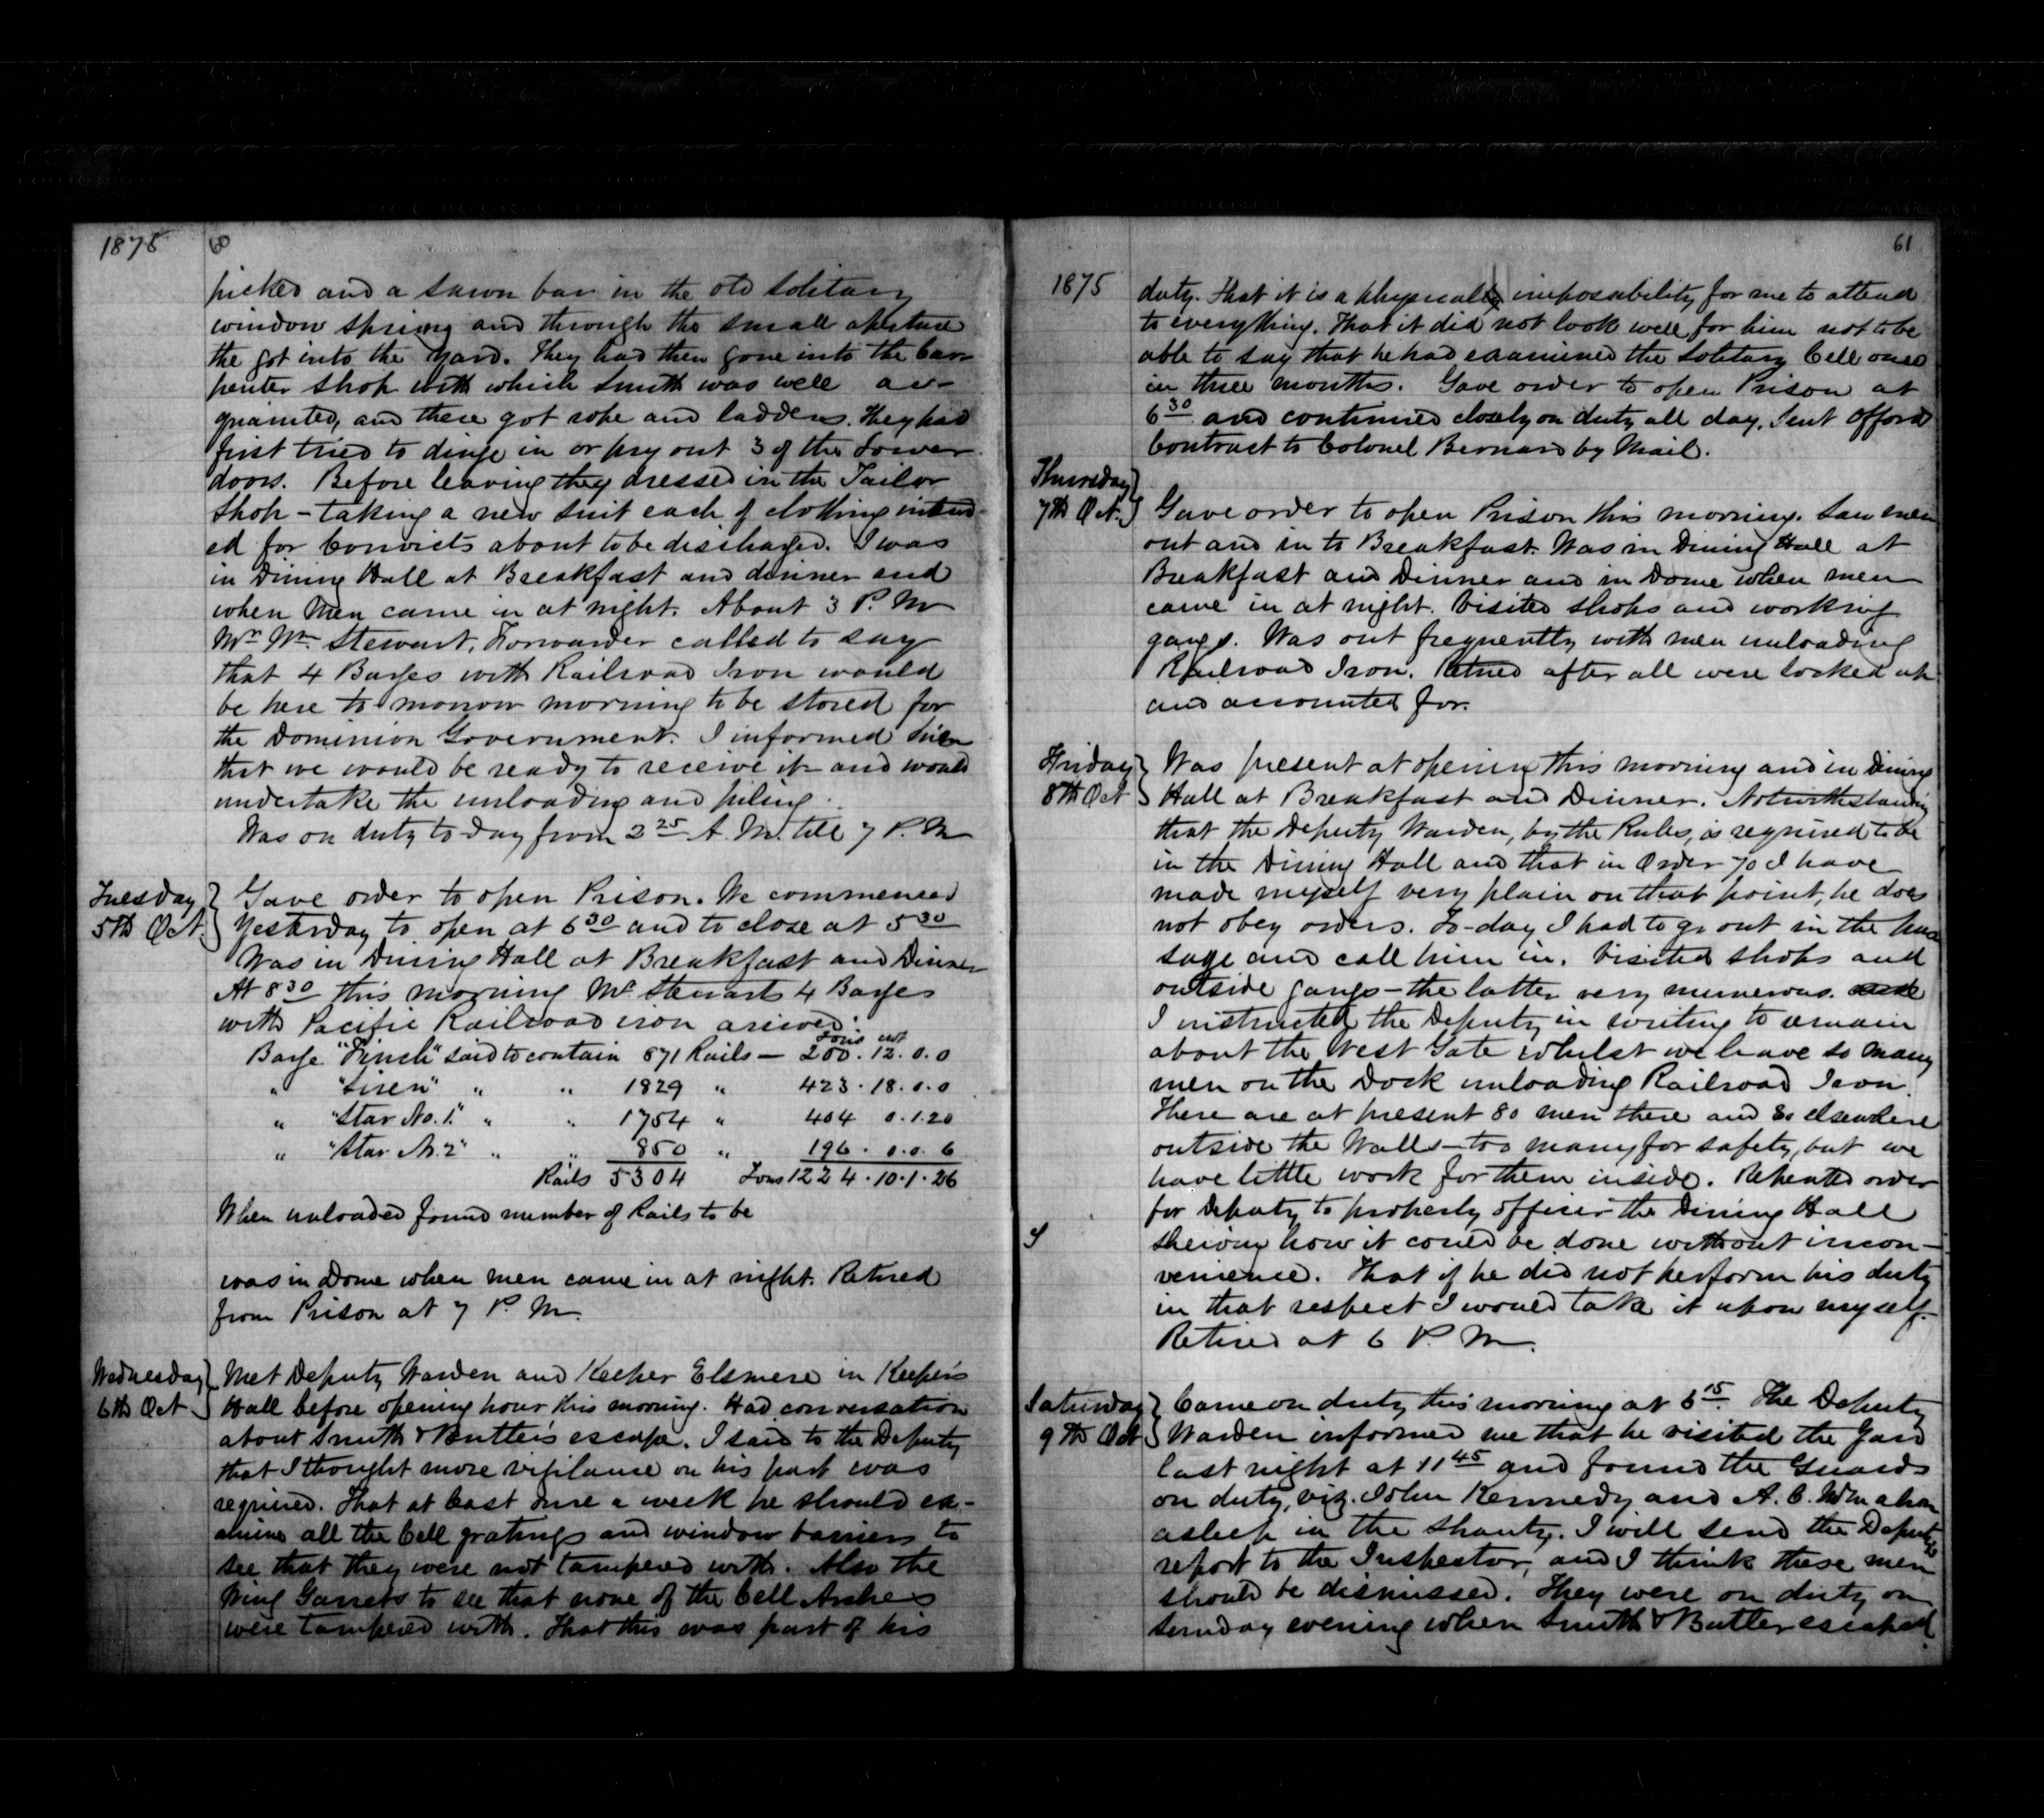 1875
60
picked and a sawn bar in the old Solitary
window sprung and through the small aperture
the got into the yard. They had then gone into the Car-
penter Shop with which Smith was well ac-
quainted, and there got rope and ladders. They had
first tried to dinge in or pry out 3 of the Tower
doors. Before leaving they dressed in the Tailor
Shop - taking a new suit each of clothing intend-
ed for Convicts about to be discharged. I was
in Dining Hall at Breakfast and dinner and
when Men came in at night. About 3 P. M
Mr Wm Stewart, Forwarder called to say
that 4 Barges with Railroad Iron would
be here to morrow morning to be stored for
the Dominion Government. I informed him
that we would be ready to receive it and would
undertake the unloading and piling.
Was on duty to day from 2 25 A. M. till 7 P. M
Tuesday
5th Oct.
Gave order to open Prison. We commenced
Yesterday to open at 6 30 and to close at 5 30
Was in Dining Hall at Breakfast and Dinner
At 8 30 this morning Mr Stewarts 4 Barges
with Pacific Railroad iron arrived.
Tons cwt
Barge "Finch" said to contain 871 Rails — 200. 12. 0. 0
" "Siren" " " 1829 " 423. 18. 0. 0
" "Star No. 1." " " 1754 " 404 0. 1. 20
" "Star No. 2" " " 850 " 196. 0. 0. 6
Rails 5304 Tons 1224. 10. 1. 26
When unloaded found number of Rails to be
was in Dome when men came in at night. Retired
from Prison at 7 P. M.
Wednesday
6th Oct
Met Deputy Warden and Keeper Elsmere in Keeper's
Hall before opening hour this morning. Had conversation
about Smith & Butler's escape. I said to the Deputy
that I thought more vigilance on his part was
required. That at least once a week he should ex-
amine all the Cell gratings and window barriers to
see that they were not tampered with. Also the
Wing Garrets to see that none of the Cell Arches
were tampered with. That this was part of his
61
1875
duty. That it is a physically impossibility for me to attend
to everything. That it did not look well for him not to be
able to say that he had examined the Solitary Cell once
in three months. Gave order to open Prison at
6 30 and continued closely on duty all day. Sent Offord
Contract to Colonel Bernard by Mail.
Thursday
7th Oct.
Gave order to open Prison this morning. Saw men
out and in to Breakfast. Was in Dining Hall at
Breakfast and Dinner and in Dome when men
came in at night. Visited shops and working
gangs. Was out frequently with men unloading
Railroad Iron. Retired after all were locked up
and accounted for.
Friday
8th Oct
Was present at opening this morning and in Dining
Hall at Breakfast and Dinner. Notwithstanding
that the Deputy Warden, by the Rules, is required to be
in the Dining Hall and that in Order 70 I have
made myself very plain on that point, he does
not obey orders. To-day I had to go out in the pas
sage and call him in. Visited shops and
outside gangs - the latter very numerous.
I instructed the Deputy in writing to remain
about the West Gate whilst we have so many
men on the Dock unloading Railroad Iron.
There are at present 80 men there and 80 elsewhere
outside the Walls - too many for safety, but we
have little work for them inside. Repeated order
for Deputy to properly officer the Dining Hall
shewing how it could be done without incon-
venience. That if he did not perform his duty
in that respect I would take it upon myself.
Retired at 6 P. M.
Saturday
9th Oct
Came on duty this morning at 6 15. The Deputy
Warden informed me that he visited the Yard
last night at 11 45 and found the Guards
on duty, viz. John Kennedy and A. C. McMahon
asleep in the Shanty. I will send the Deputy's
report to the Inspector, and I think these men
should be dismissed. They were on duty on
Sunday evening when Smith & Butler escaped.